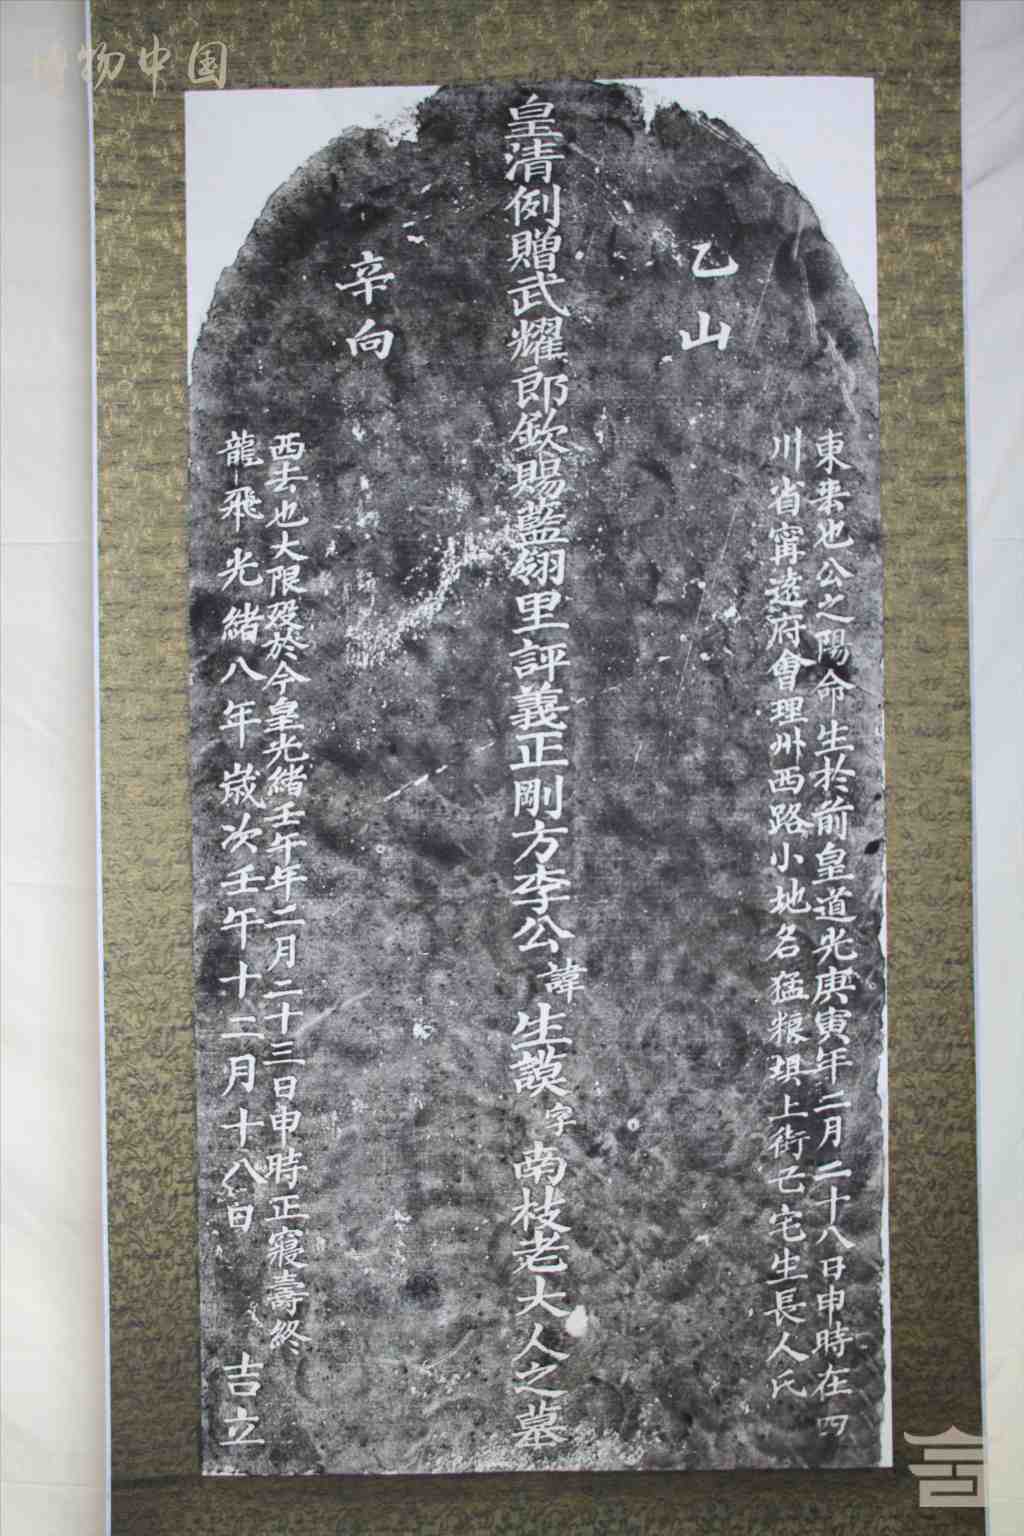 博物中国
乙山
東来也公之陽命生於前皇道光庚寅年二月二十八日申時在四
川省甯遠府會理州西路小地名猛粮垻上街己宅生長人氏
皇清例贈武耀郎欽賜藍翎里評義正剛方李公諱生謨字南枝老大人之墓
辛向
西去也大限殁於今皇光緒壬午年二月二十三日申時正寢壽終
龍飛光緒八年歲次壬午十二月十八日吉立